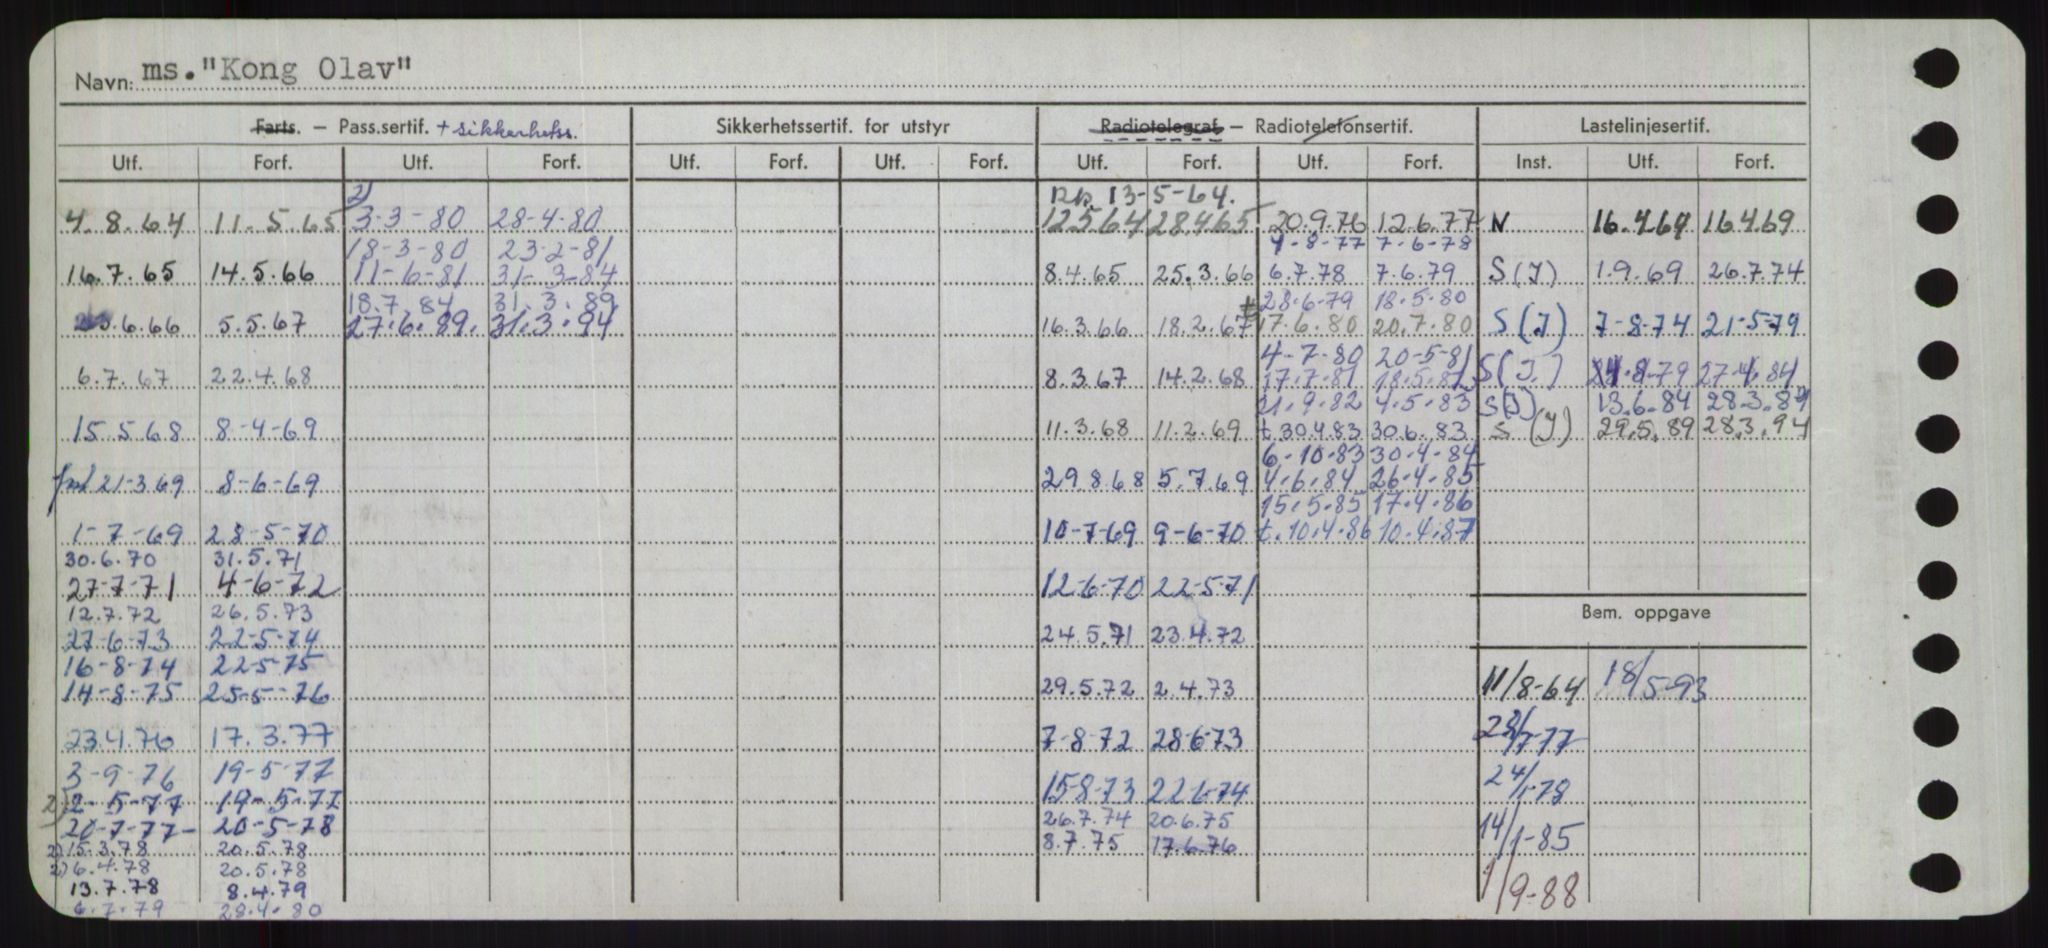 Navn: ms. "Kong Olav"
Farts. – Pass.sertif. + sikkerhetss. Sikkerhetssertif. for utstyr Radiotelegraf – Radiotelefonsertif. Lastelinjesertif.
Utf. Forf. Utf. Forf. Utf. Forf. Utf. Forf. Utf. Forf. Utf. Forf. Inst. Utf. Forf.
2) 13-5-64.
4.8.64 11.5.65 3-3-80 28-4-80 12564 28465 20.9.76 12.6.77 N 16.4.64 16.4.69
18-3-80 23-2-81 4-8-77 7-6-78
16.7.65 14.5.66 11-6-81 31-3-84 8.4.65 25.3.66 6.7.78 7.6.79 S(J) 1.9.69 26.7.74
18.7.84 31.3.89 28.6.79 18.5.80
6.66 5.5.67 27.6.89. 31.3.94 16.3.66 18.2.67 17.6.80 20.7.80 S(J) 7-8-74 21-5-79
4-7-80 20-5-81
6.7.67 22.4.68 8.3.67 14.2.68 17.7.81 18.5.82 S(J.) 8-79 27.4.84
21.9.82 4.5.83 S(J) 13.6.84 28.3.89
15.5.68 8-4-69 11.3.68 11.2.69 t 30.4.83 30.6.83 S (J) 29.5.89 28.3.94
6.10.83 30.4.84
21-3.69 8-6-69 29.8.68 5.7.69 4.6.84 26.4.85
15.5.85 17.4.86
1-7-69 28-5-70 10-7-69 9-6-70 t.10.4.86 10.4.87
30.6.70 31.5.71
27-7-71 4-6-72 12-6-70 22-5-71
12.7.72 26.5.73 Bem. oppgave
27-6-73 22-5-74 24.5.71 23.4.72
16-8-74 22-5-75
14-8-75 25-5-76 29.5.72 2.4.73 11/8-64 18/5-93
23.4.76 17.3.77 7-8-72 28-6-73 28/7-77
3-9-76 19-5-77 24/1-78
2) 2-5-77 19-5-77 15-8-73 22-6-74
20-7-77 20-5-78 26.7.74 20.6.75 14/1-85
2) 15.3.78 20.5.78 8.7.75 17.6.76
2) 6.4.78 20.5.78
13.7.78 8.4.79 1/9-88
6.7.79 28.4.80